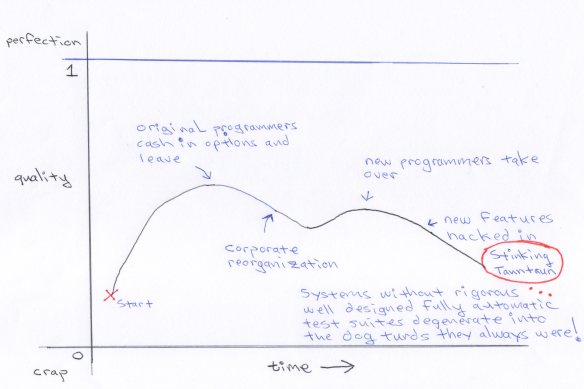 perfection
1
original programmers
cash in options and
leave
new programmers take
over
quality
new features
hacked in
corporate
reorganization
Stinking
Tauntaun
Start
Systems without rigorous ...
well designed fully automatic
test suites degenerate into
the dog turds they always were!
0
crap
time →